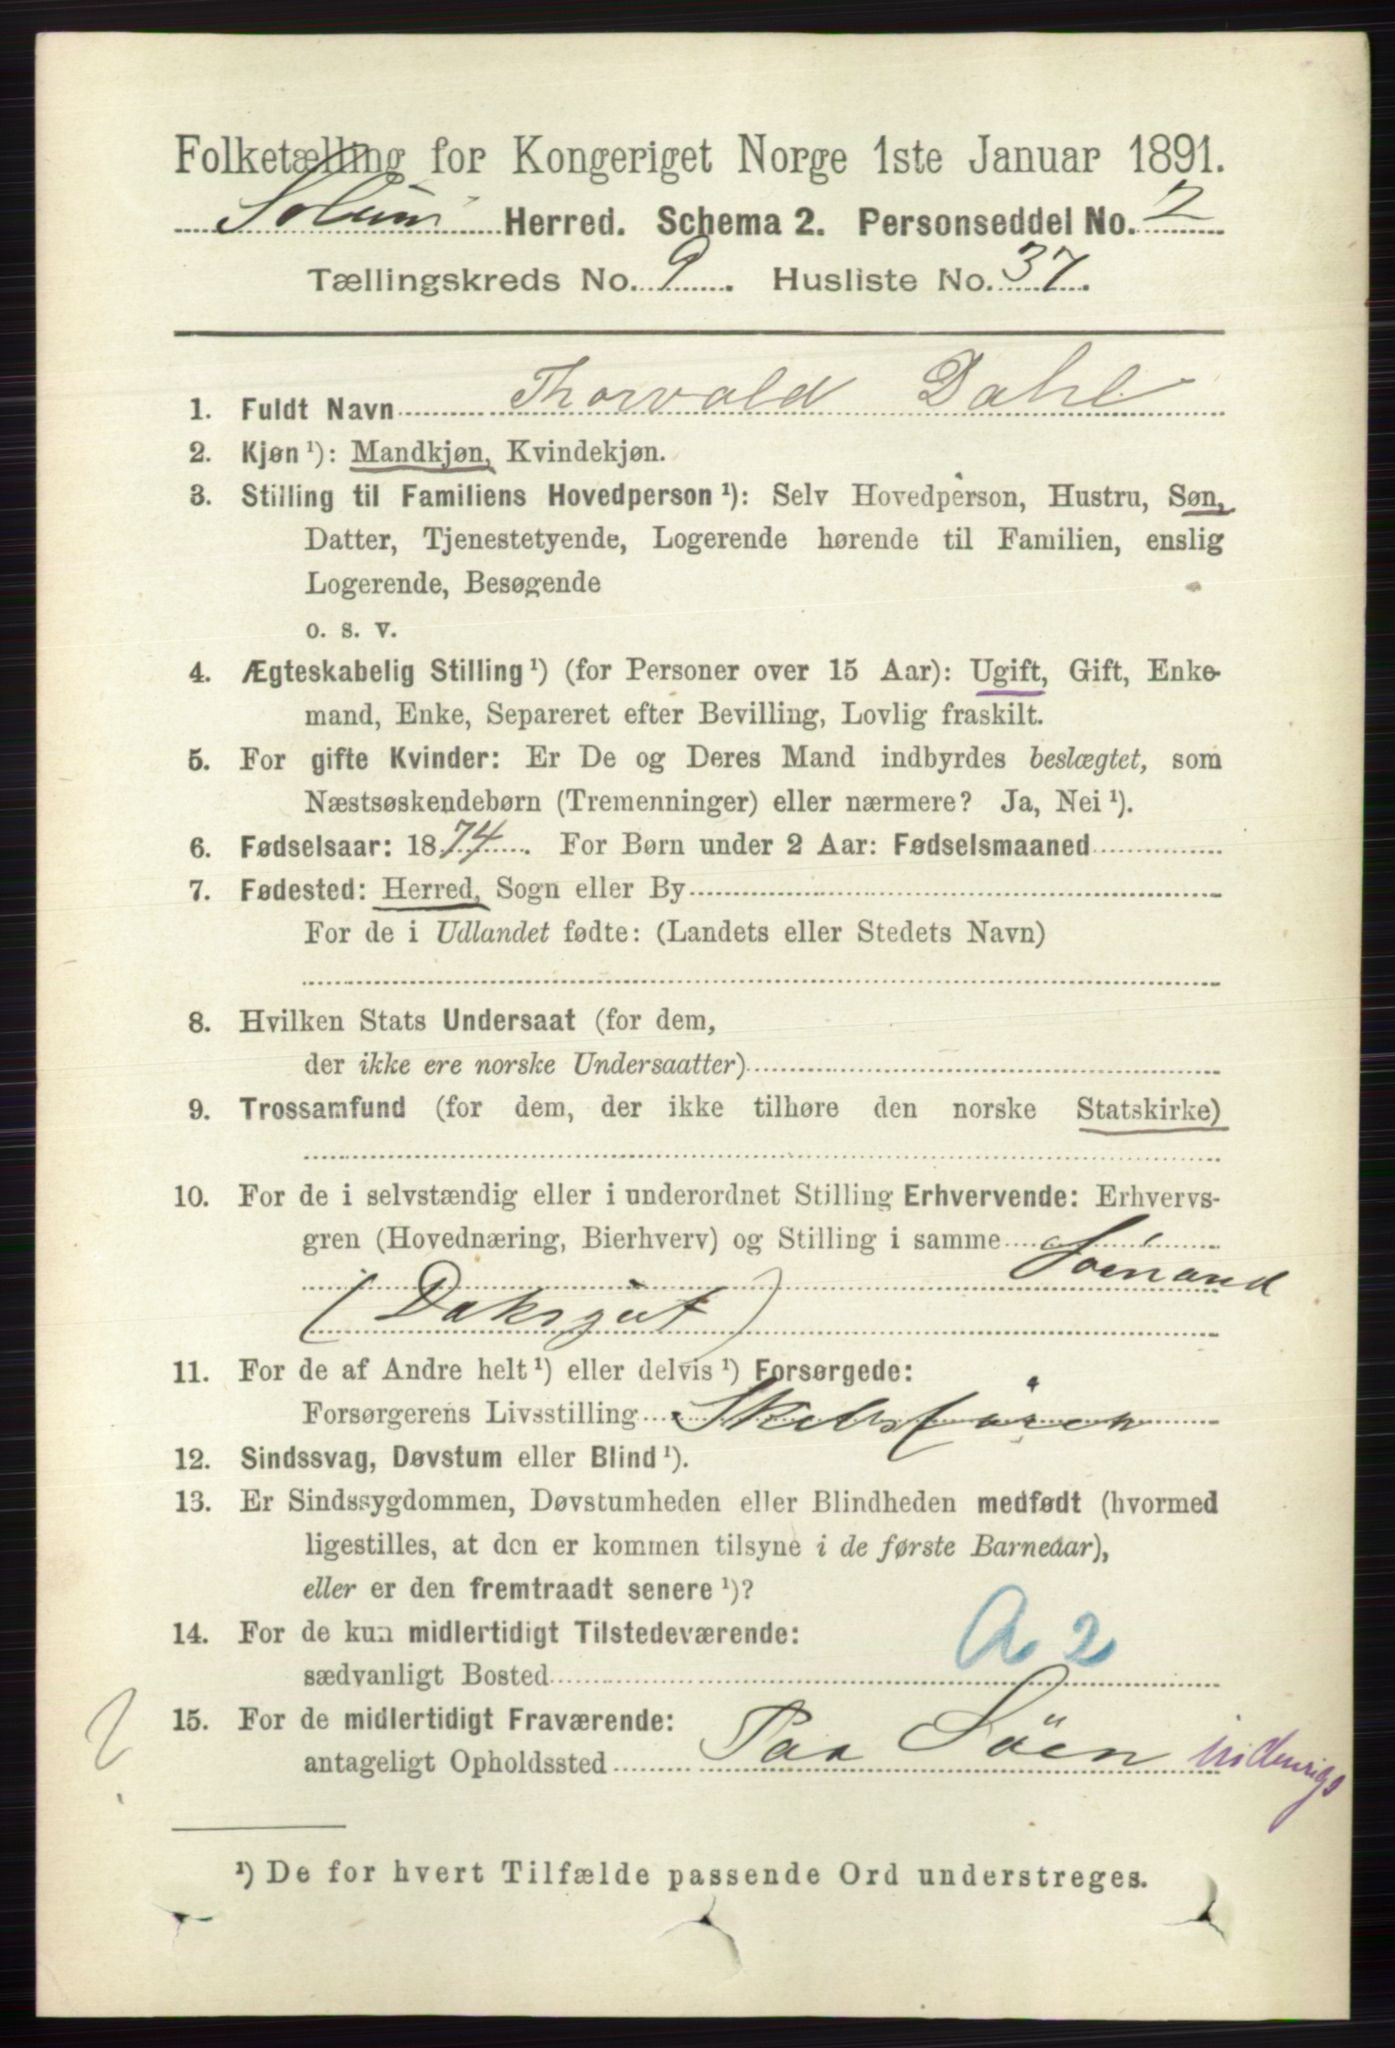 Folketælling for Kongeriget Norge 1ste Januar 1891.
Solum Herred. Schema 2. Personseddel No. 2
Tællingskreds No. 9. Husliste No. 37.
1. Fuldt Navn Thorvald Dahl
2. Kjøn¹): Mandkjøn, Kvindekjøn.
3. Stilling til Familiens Hovedperson¹): Selv Hovedperson, Hustru, Søn,
Datter, Tjenestetyende, Logerende hørende til Familien, enslig
Logerende, Besøgende
o. s. v.
4. Ægteskabelig Stilling¹) (for Personer over 15 Aar): Ugift, Gift, Enke-
mand, Enke, Separeret efter Bevilling, Lovlig fraskilt.
5. For gifte Kvinder: Er De og Deres Mand indbyrdes beslægtet, som
Næstsøskendebørn (Tremenninger) eller nærmere? Ja, Nei¹).
6. Fødselsaar: 1874. For Børn under 2 Aar: Fødselsmaaned
7. Fødested: Herred, Sogn eller By
For de i Udlandet fødte: (Landets eller Stedets Navn)
8. Hvilken Stats Undersaat (for dem,
der ikke ere norske Undersaatter)
9. Trossamfund (for dem, der ikke tilhøre den norske Statskirke)
10. For de i selvstændig eller i underordnet Stilling Erhvervende: Erhvervs-
gren (Hovednæring, Bierhverv) og Stilling i samme Sømand
(Daksgut)
11. For de af Andre helt¹) eller delvis¹) Forsørgede:
Forsørgerens Livsstilling
12. Sindssvag, Døvstum eller Blind¹).
13. Er Sindssygdommen, Døvstumheden eller Blindheden medfødt (hvormed
ligestilles, at den er kommen tilsyne i de første Barneaar),
eller er den fremtraadt senere¹)?
14. For de kun midlertidigt Tilstedeværende: A 2
sædvanligt Bosted
15. For de midlertidigt Fraværende:
antageligt Opholdssted Paa Söen indenrigs
¹) De for hvert Tilfælde passende Ord understreges.